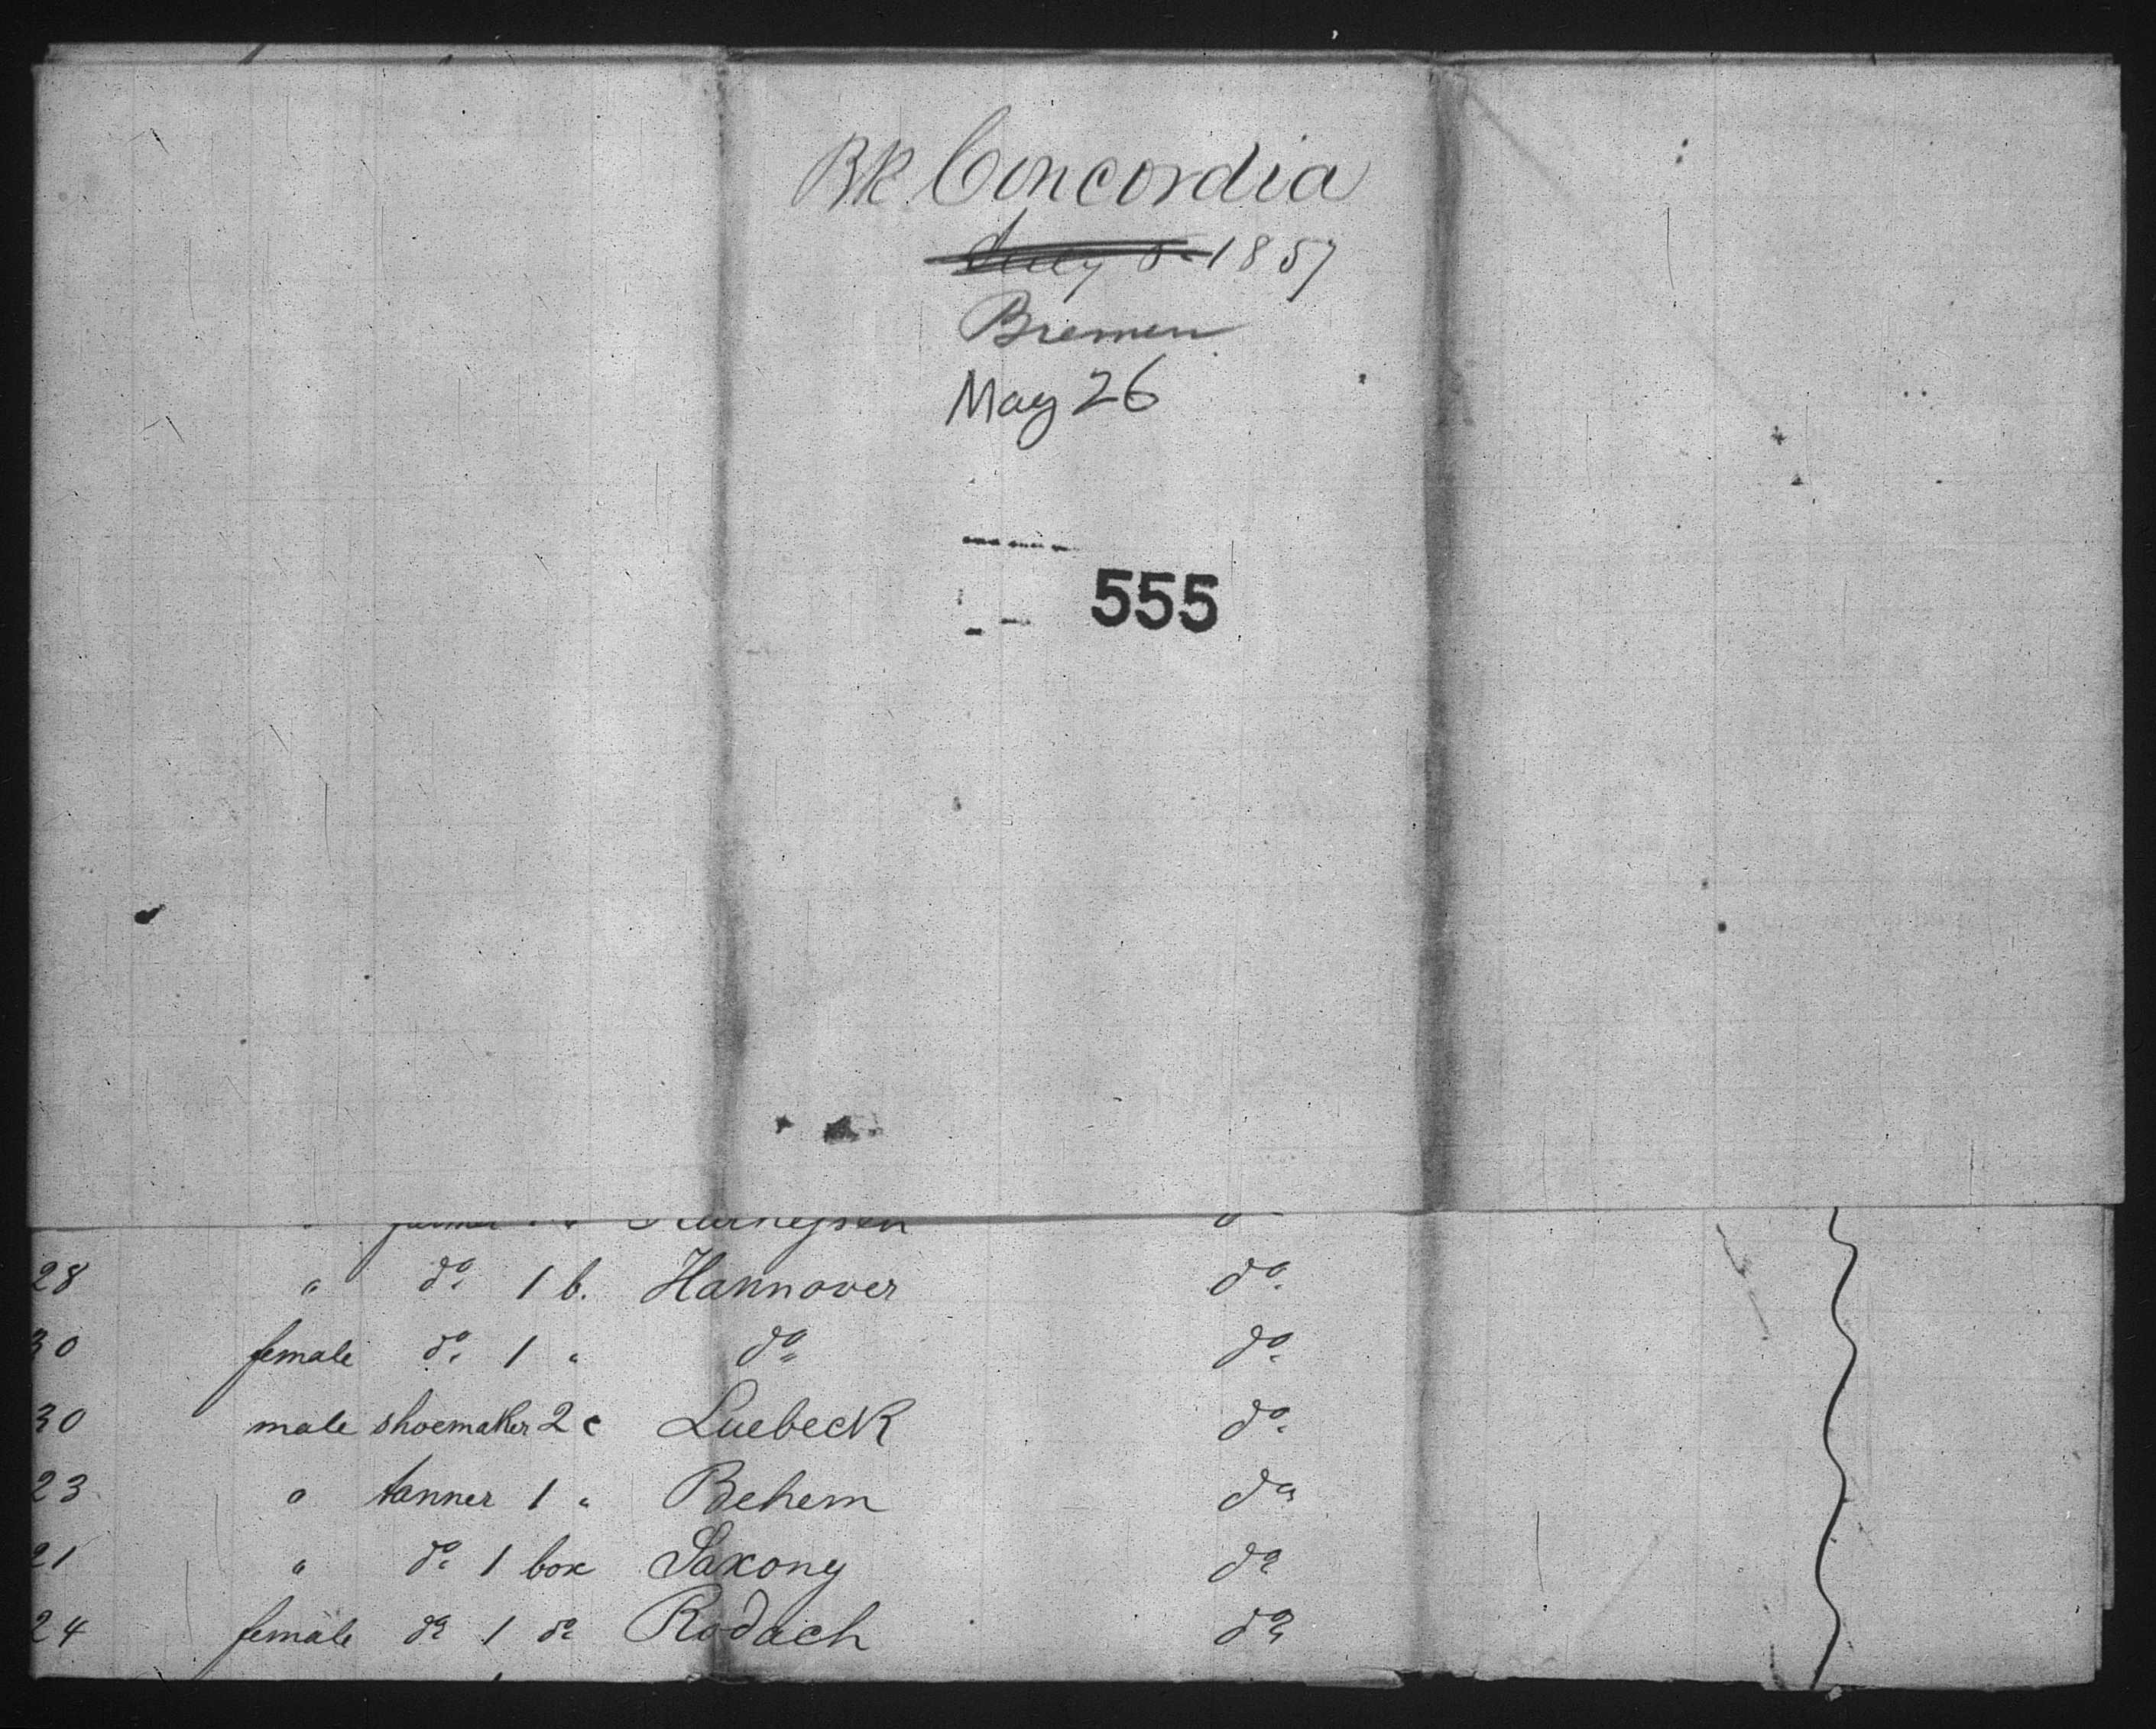 BK. Concordia
July 5 1857
Bremen
May 26
555
farmer
28 " do. 1 b. Hannover do.
30 female do. 1 " do. do.
30 male shoemaker 2 c Luebeck do.
23 " tanner 1 " Behem do.
21 " do. 1 box Saxony do.
24 female do. 1 do. Rodach do.